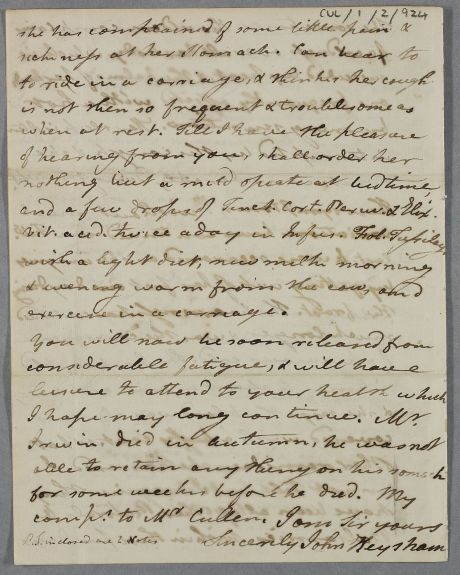 CUL/1/2/924
she has complained of some little pain &
sickness at her Stomach. Can bear to
to ride in a carriage, & thinks her cough
is not then so frequent & troublesome as
when at rest. Till I have the pleasure
of hearing from you, shall order her
nothing but a mild opiate at bedtime
and a few drops of Tinct. Cort. Peruv. & Elix.
Vit. acid. twice a day in Infus. Fol. Tussilag.
with a light diet, new milk morning
& evening warm from the cow, and
exercise in a carriage.
You will now be soon released from
considerable fatigue, & will have a
leisure to attend to your health which
I hope may long continue. Mr.
Irwin died in autumn, he was not
able to retain any thing on his stomach
for some weeks before he died. My
comps. to Mrs Cullen. I am Sir yours
Sincerely John Heysham
P.S. inclosed are 2 Notes